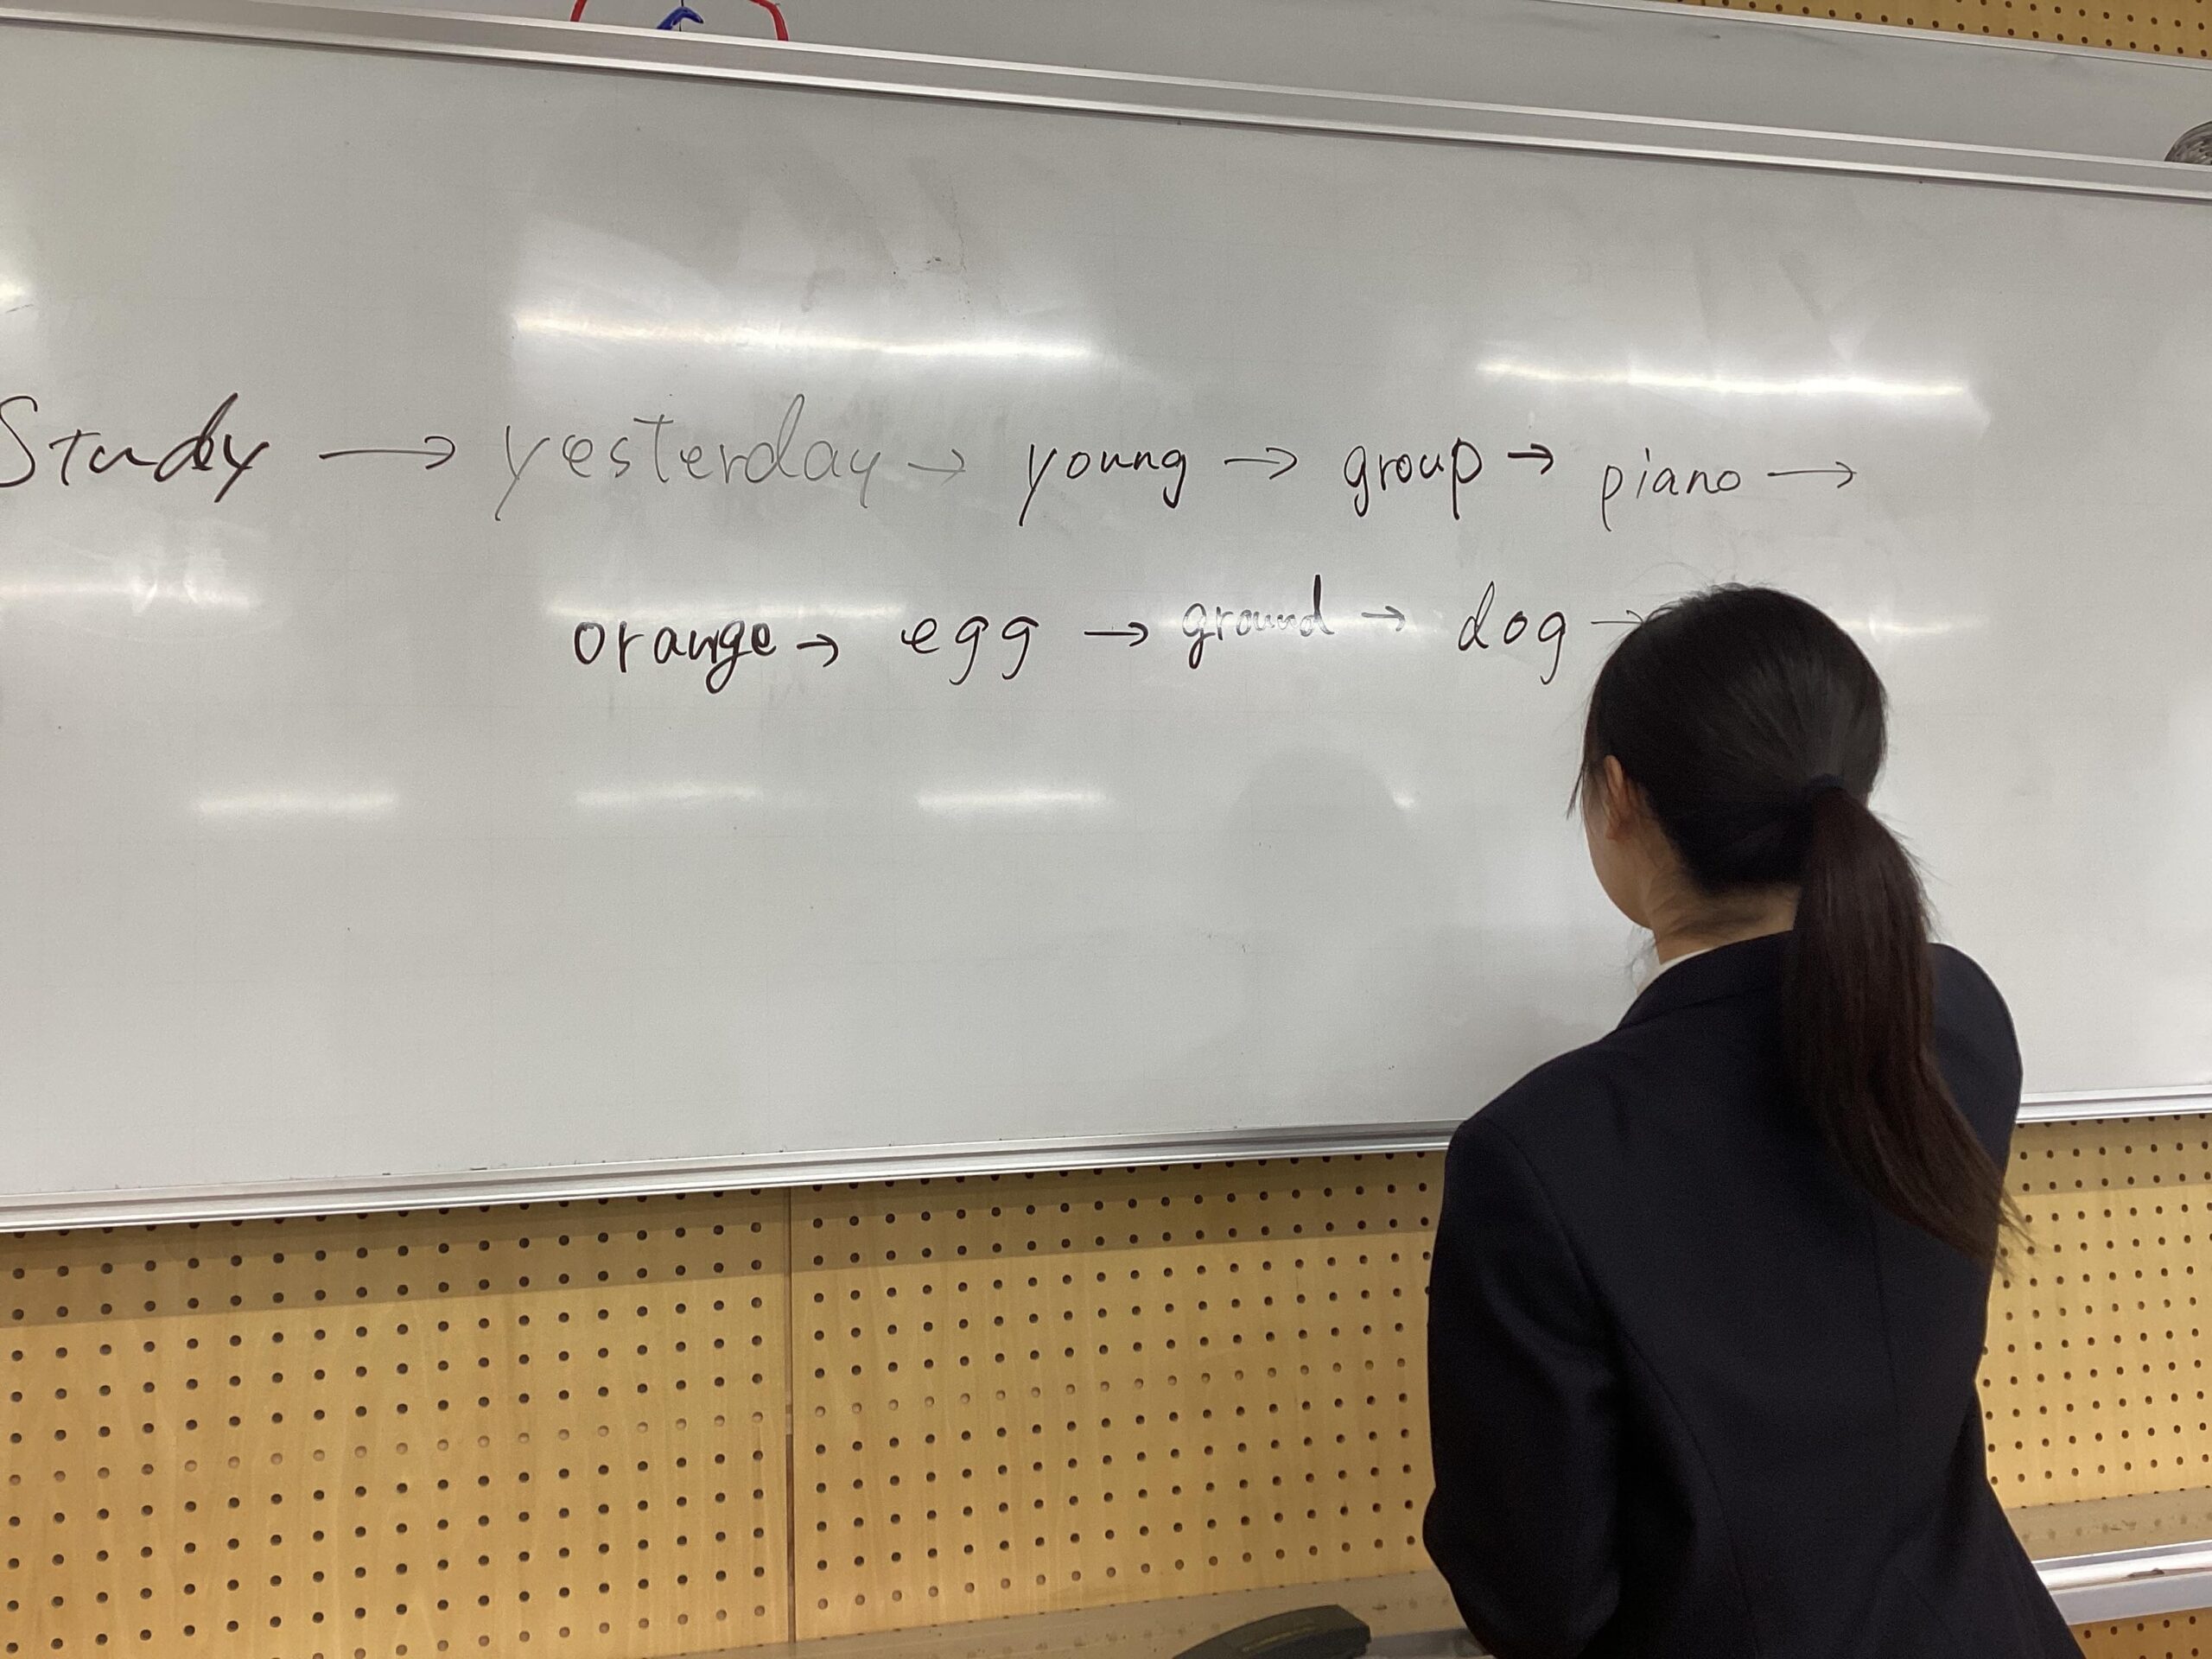 Study → yesterday → young → group → piano →
orange → egg → ground → dog →